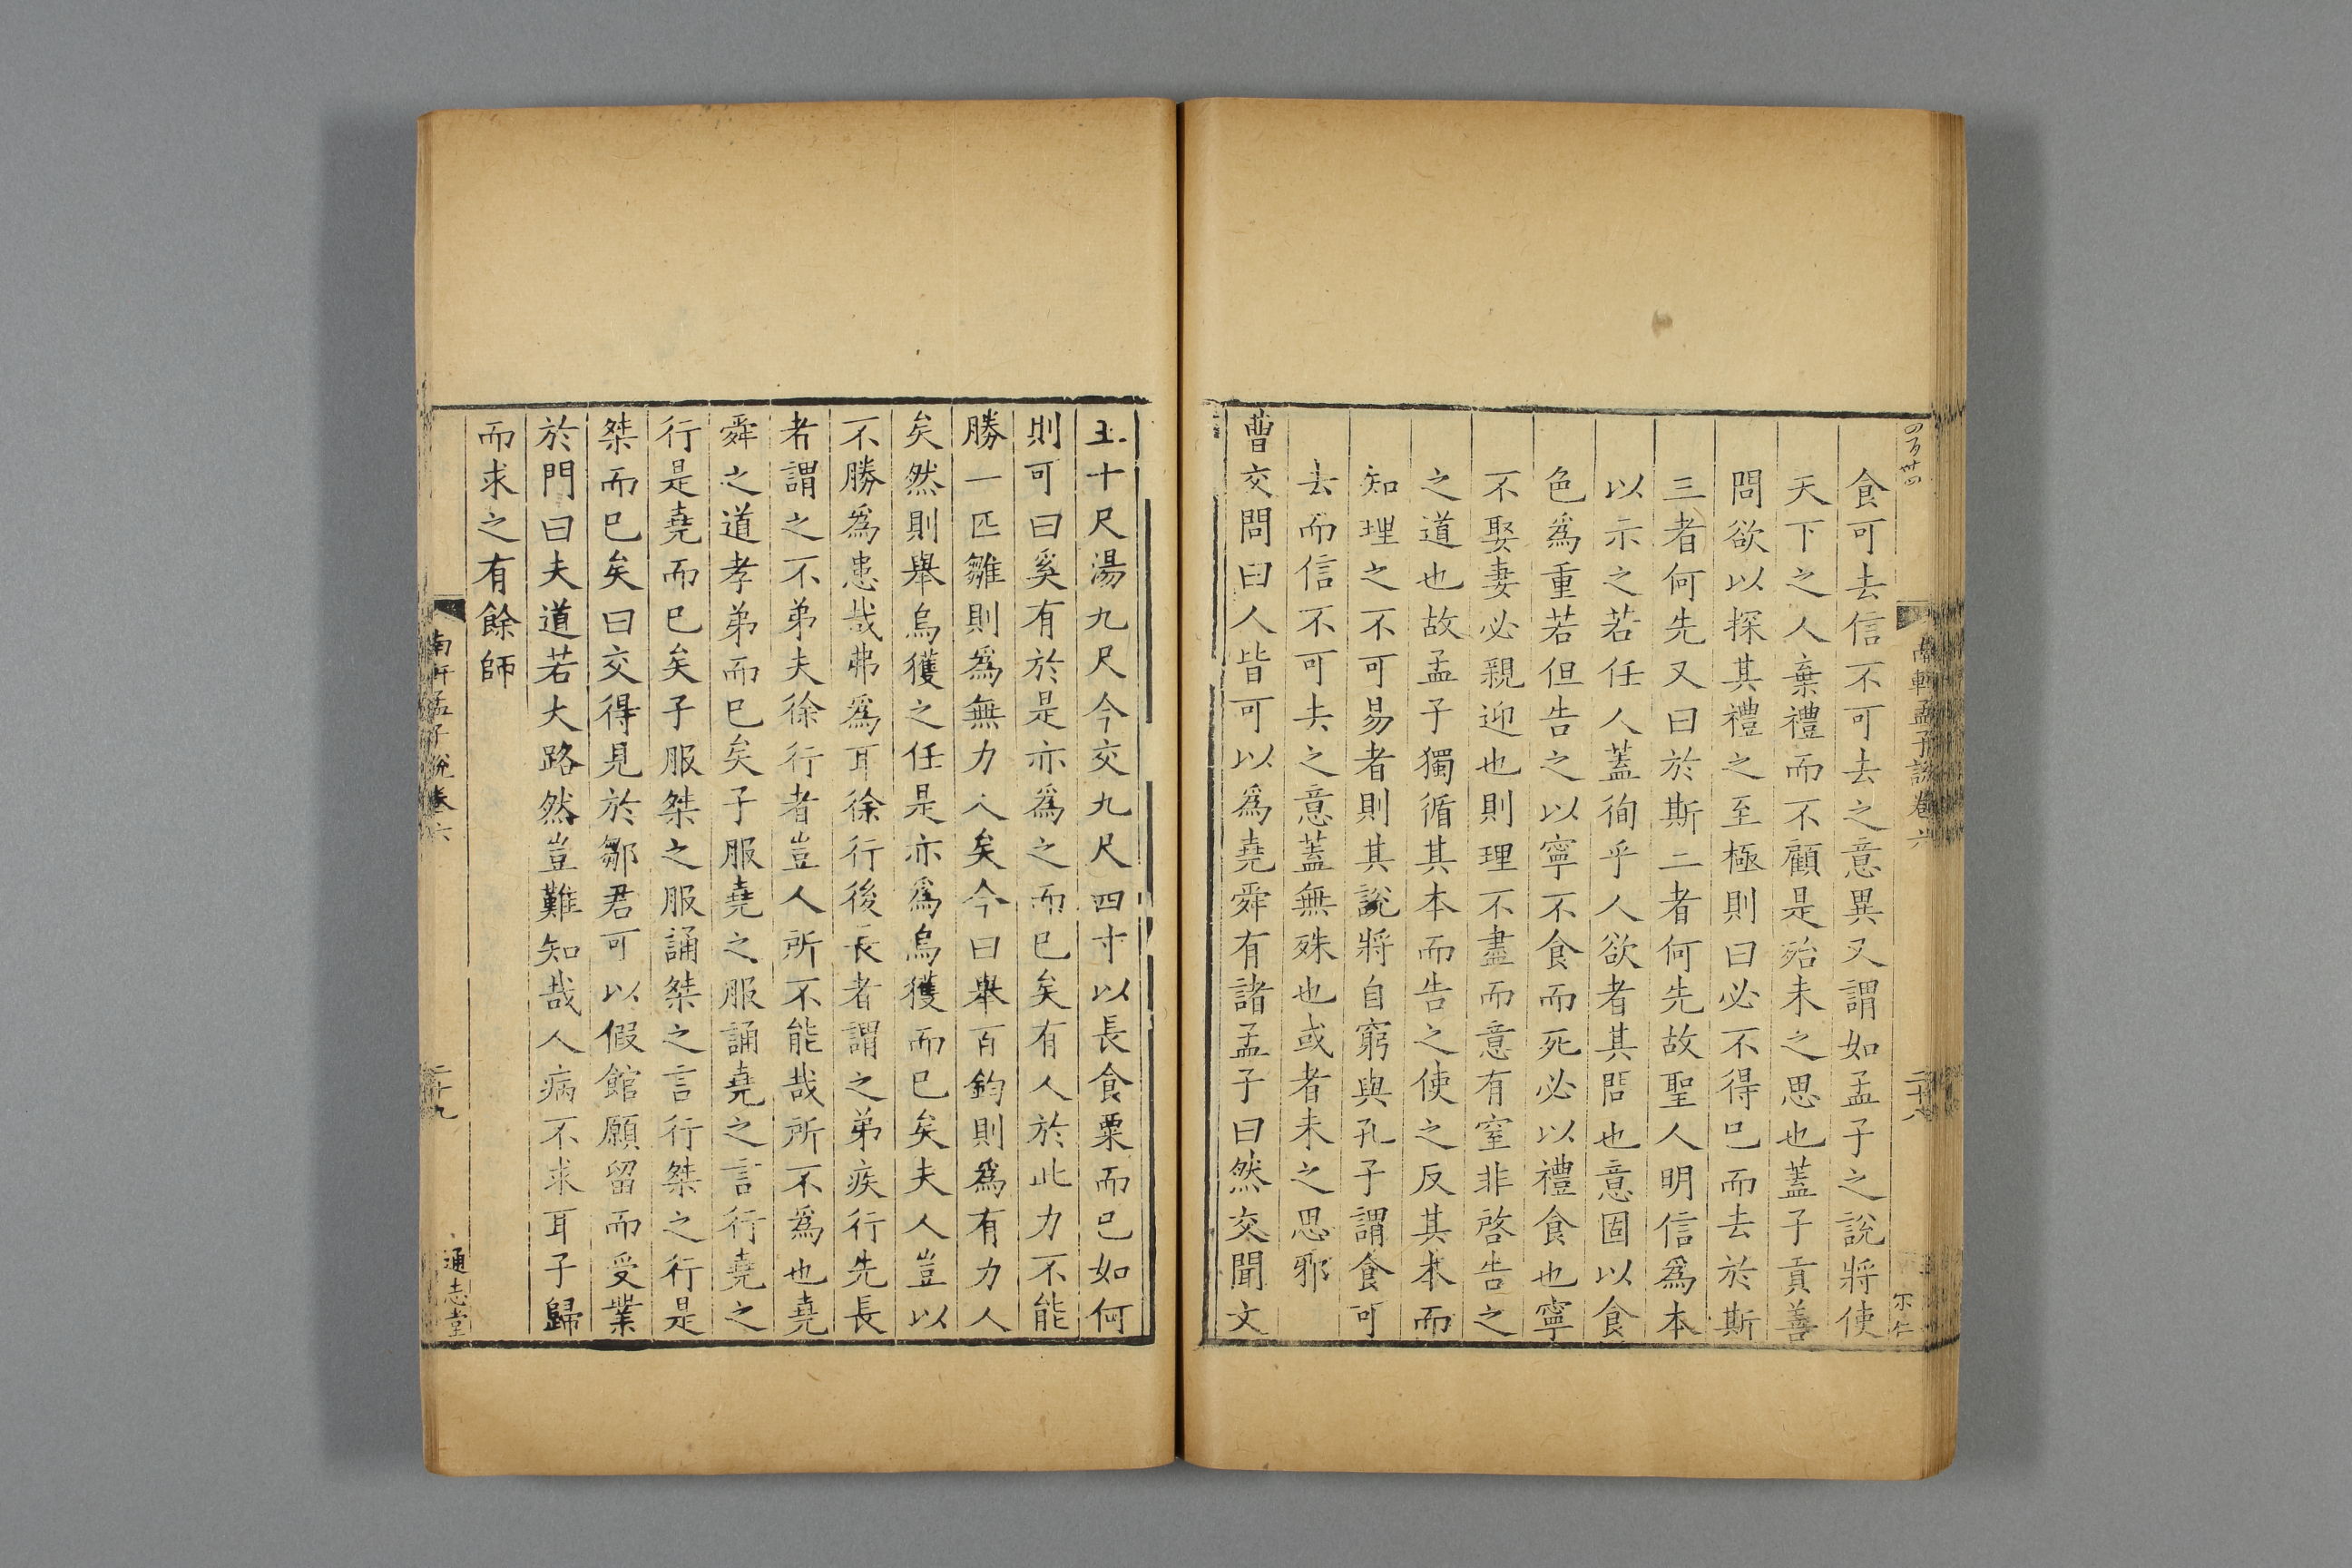 四百卅四
南軒孟子說卷六
二十八
尓仁
食可去信不可去之意異又謂如孟子之說將使
天下之人棄禮而不顧是殆未之思也蓋子貢善
問欲以探其禮之至極則曰必不得已而去於斯
三者何先又曰於斯二者何先故聖人明信為本
以示之若任人蓋徇乎人欲者其問也意固以食
色爲重若但告之以寧不食而死必以禮食也寧
不娶妻必親迎也則理不盡而意有窒非啓告之
之道也故孟子獨循其本而告之使之反其本而
知理之不可易者則其說將自窮與孔子謂食可
去而信不可去之意蓋無殊也或者未之思邪
曹交問曰人皆可以爲堯舜有諸孟子曰然交聞文
王十尺湯九尺今交九尺四寸以長食粟而已如何
則可曰奚有於是亦爲之而已矣有人於此力不能
勝一匹雛則爲無力人矣今曰舉百鈞則爲有力人
矣然則舉烏獲之任是亦爲烏獲而已矣夫人豈以
不勝爲患哉弗爲耳徐行後長者謂之弟疾行先長
者謂之不弟夫徐行者豈人所不能哉所不爲也堯
舜之道孝弟而已矣子服堯之服誦堯之言行堯之
行是堯而已矣子服桀之服誦桀之言行桀之行是
桀而已矣曰交得見於鄒君可以假館願留而受業
於門曰夫道若大路然豈難知哉人病不求耳子歸
而求之有餘師
南軒孟子說卷六
二十九
通志堂